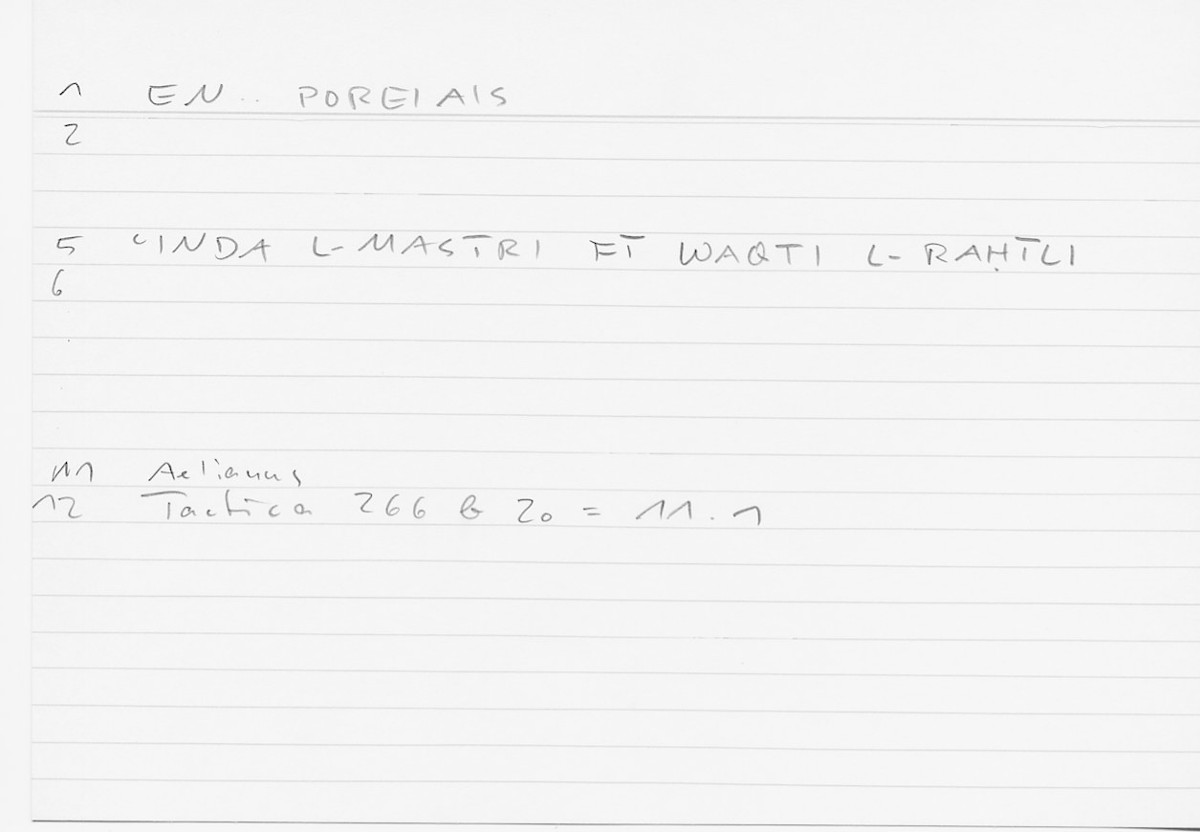 1 EN .. POREIAIS
2
5 ʿINDA L-MASĪRI ET WAQTI L-RAḤĪLI
6
11 Aelianus
12 Tactica 266 b 20 = 11.1